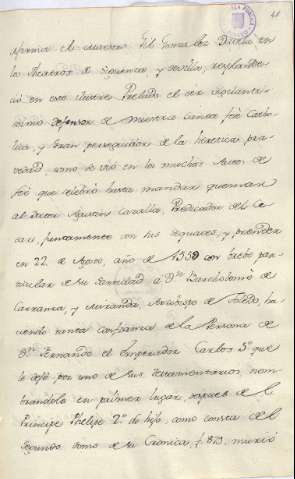 afirma el maestro Gil Gonzalez Davila en
los theatros de Siguenza, y Sevilla, resplande-
ció en este Ilustre Prelado el ser vigilanti-
simo defensor de nuestra Santa feè Catho-
lica, y gran perseguidor de la heretica pra-
vedad, como se vió en los muchos Autos de
feè que celebró hasta mandar quemar
al doctor Agustin Cazalla, Predicador del Ce-
sar, juntamente con sus sequaces, y prender
en 22 de Agosto, año de 1559 con brebe par-
ticular de su Santidad à Dn Bartholomé de
Carranza, y Miranda, Arzobispo de Toledo, ha-
ciendo tanta confianza de la Persona de
Dn Fernando el Emperador Carlos 5º que
le dejó por uno de sus testamentarios, nom-
brandolo en primer lugar, despues de el
Principe Phelipe 2º su hijo, como consta del
segundo tomo de su Cronica, f. 873. murió